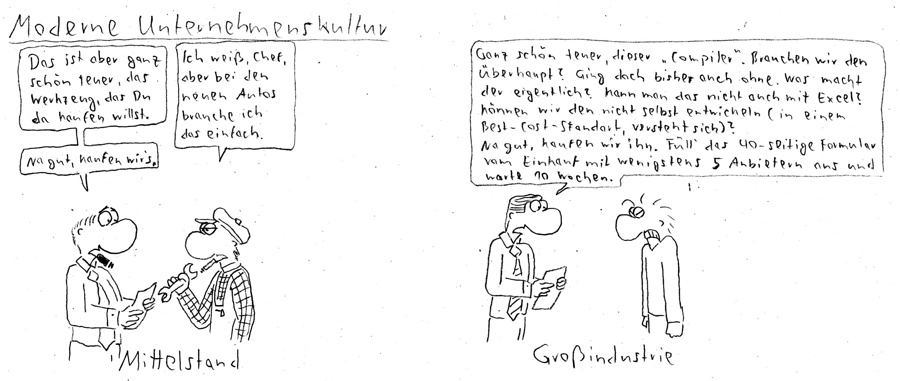 Moderne Unternehmenskultur
Das ist aber ganz
schön teuer, das
Werkzeug, das Du
da kaufen willst.
Na gut, kaufen wir's.
Ich weiß, Chef,
aber bei den
neuen Autos
brauche ich
das einfach.
Mittelstand
Ganz schön teuer, dieser „Compiler". Brauchen wir den
überhaupt? Ging doch bisher auch ohne. Was macht
der eigentlich? Kann man das nicht auch mit Excel?
Können wir den nicht selbst entwickeln (in einem
Best-Cost-Standort, versteht sich)?
Na gut, kaufen wir ihn. Füll' das 40-seitige Formular
vom Einkauf mit wenigstens 5 Anbietern aus und
warte 10 Wochen.
Großindustrie